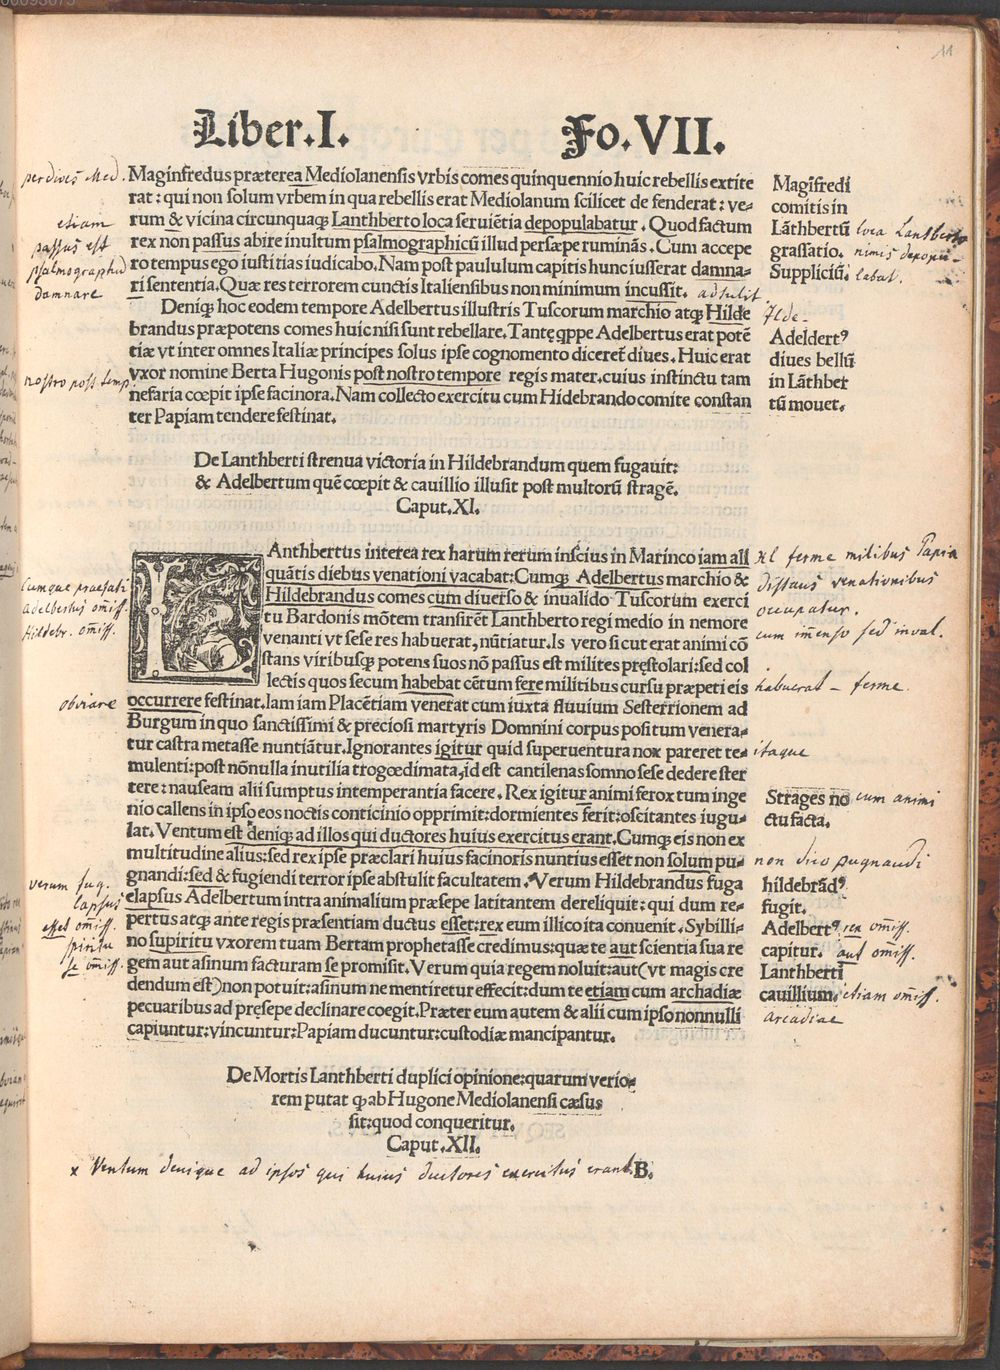 11
Liber.I. Fo.VII.
Maginfredus præterea Mediolanensis vrbis comes quinquennio huic rebellis extite
rat: qui non solum vrbem in qua rebellis erat Mediolanum scilicet defenderat: ve-
rum & vicina circunquaqȝ Lanthberto loca seruiētia depopulabatur. Quod factum
rex non passus abire inultum psalmographicū illud persæpe ruminās. Cum accepe
ro tempus ego iustitias iudicabo. Nam post paululum capitis hunc iusserat damna-
ri sententia. Quæ res terrorem cunctis Italiensibus non minimum incussit.
Deniqȝ hoc eodem tempore Adelbertus illustris Tuscorum marchio atqȝ Hilde
brandus præpotens comes huic nisi sunt rebellare. Tantę qppe Adelbertus erat potē
tiæ vt inter omnes Italiæ principes solus ipse cognomento diceret diues. Huic erat
vxor nomine Berta Hugonis post nostro tempore regis mater. cuius instinctu tam
nefaria cœpit ipse facinora. Nam collecto exercitu cum Hidebrando comite constan
ter Papiam tendere festinat.
per dives Med.
etiam
passus est
psalmographū
damnare
nostro post temp.
Magifredi
comitis in
Lāthbertū
grassatio.
Suppliciū.
loca Lantberto
nimis depopu-
labat.
adtulit
Ilde-
Adeldertꝰ
diues bellū
in Lāthber
tū mouet.
De Lanthberti strenua victoria in Hildebrandum quem fugauit:
& Adelbertum quē cœpit & cauillio illusit post multorū stragē.
Caput.XI.
LAnthbertus interea rex harum rerum inscius in Marinco iam ali
quātis diebus venationi vacabat: Cumqȝ Adelbertus marchio &
Hildebrandus comes cum diuerso & inualido Tuscorum exerci
tu Bardonis mōtem transirēt Lanthberto regi medio in nemore
venanti vt sese res habuerat, nūtiatur. Is vero sicut erat animi cō
stans viribusqȝ potens suos nō passus est milites pręstolari: sed col
lectis quos secum habebat cētum fere militibus cursu præpeti eis
occurrere festinat. Iam iam Placētiam venerat cum iuxta fluuium Sesterrionem ad
Burgum in quo sanctissimi & preciosi martyris Domnini corpus positum venera-
tur castra metasse nuntiātur. Ignorantes igitur quid superuentura nox pareret te-
mulenti: post nōnulla inutilia trogœdimata, id est cantilenas somno sese dedere ster
tere: nauseam alii sumptus intemperantia facere. Rex igitur animi ferox tum inge
nio callens in ipso eos noctis conticinio opprimit: dormientes ferit: oscitantes iugu-
lat. Ventum est deniqȝ ad illos qui ductores huius exercitus erant. Cumqȝ eis non ex
multitudine alius: sed rex ipse præclari huius facinoris nuntius esset non solum pu-
gnandi: sed & fugiendi terror ipse abstulit facultatem. Verum Hildebrandus fuga
elapsus Adelbertum intra animalium præsepe latitantem dereliquit: qui dum re-
pertus atqȝ ante regis præsentiam ductus esset: rex eum illico ita conuenit. Sybilli-
no supiritu vxorem tuam Bertam prophetasse credimus: quæ te aut scientia sua re
gem aut asinum facturam se promisit. Verum quia regem noluit: aut (vt magis cre
dendum est) non potuit: asinum ne mentiretur effecit: dum te etiam cum archadiæ
pecuribus ad pręsepe declinare coegit. Præter eum autem & alii cum ipso nonnulli
capiuntur: vincuntur: Papiam ducuntur: custodiæ mancipantur.
Cumque praefati
Adelbertus om̄iss.
Hildebr. om̄iss.
obviare
verum fug.
lapsus
esset om̄iss.
spiritu
se om̄iss.
XL ferme milibus Papia
Distans venationibus
occupatur.
cum im̄enso sed inval.
habuerat – ferme.
itaque
Strages no
ctu facta.
cum animi
non dico pugnandi
hildebrādꝰ
fugit.
Adelbertꝰ
capitur.
Lanthberti
cauillium.
rex om̄iss.
aut om̄iss.
etiam om̄iss.
arcadiae
De Mortis Lanthberti duplici opinione: quarum verio-
rem putat qȝ ab Hugone Mediolanensi cæsus
sit: quod conqueritur.
Caput.XII.
x Ventum denique ad ipsos qui huius ductores exercitus erant.
B.